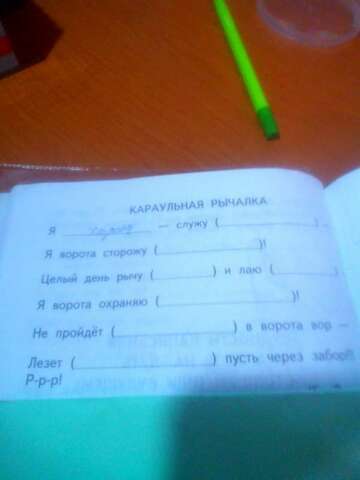 КАРАУЛЬНАЯ РЫЧАЛКА
Я ________ — служу (____________) .
Я ворота сторожу (____________)!
Целый день рычу (________) и лаю (________)
Я ворота охраняю (____________)!
Не пройдёт (____________) в ворота вор —
Лезет (____________) пусть через забор!
Р-р-р!